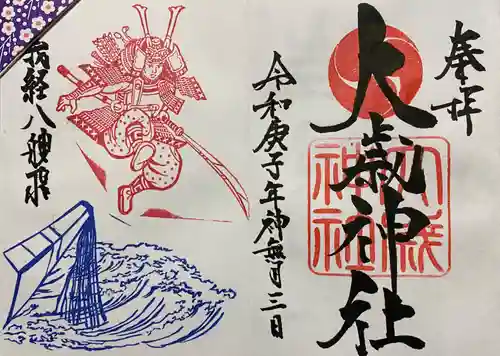 奉拝
大歳神社
大歳神社
令和庚子年神無月三日
義経八艘飛